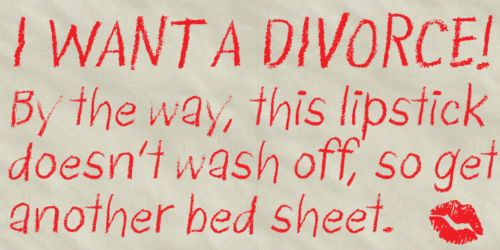 I WANT A DIVORCE!
By the way, this lipstick
doesn't wash off, so get
another bed sheet.